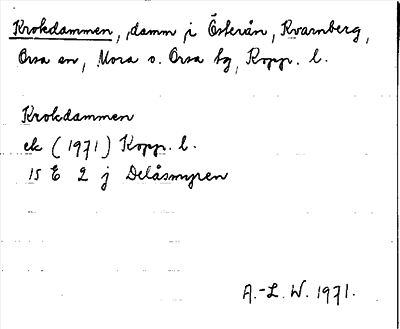 Krokdammen, damm i Österån, Kvarnberg,
Orsa sn, Mora o. Orsa tg, Kopp. l.
Krokdammen
ek (1971) Kopp. l.
15 E 2 j Delåsmyren
A.-L. W. 1971.